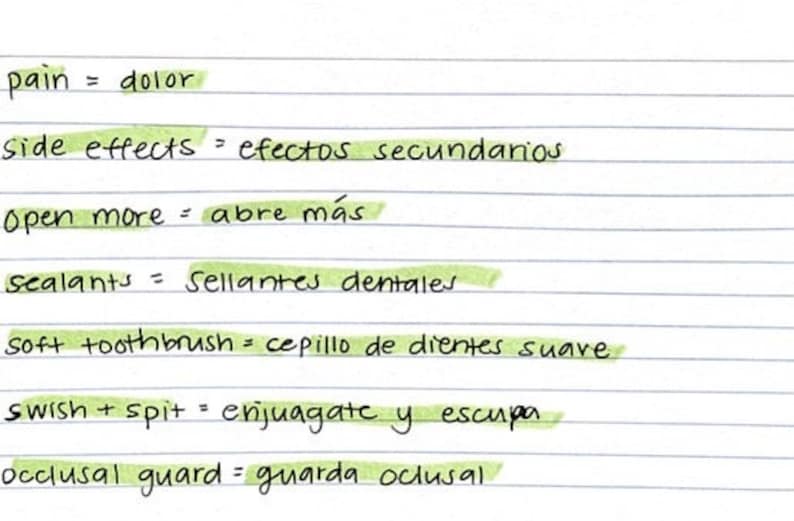 pain = dolor
side effects = efectos secundarios
open more = abre más
sealants = sellantes dentales
soft toothbrush = cepillo de dientes suave
swish + spit = enjuagate y escupa
occlusal guard = guarda oclusal